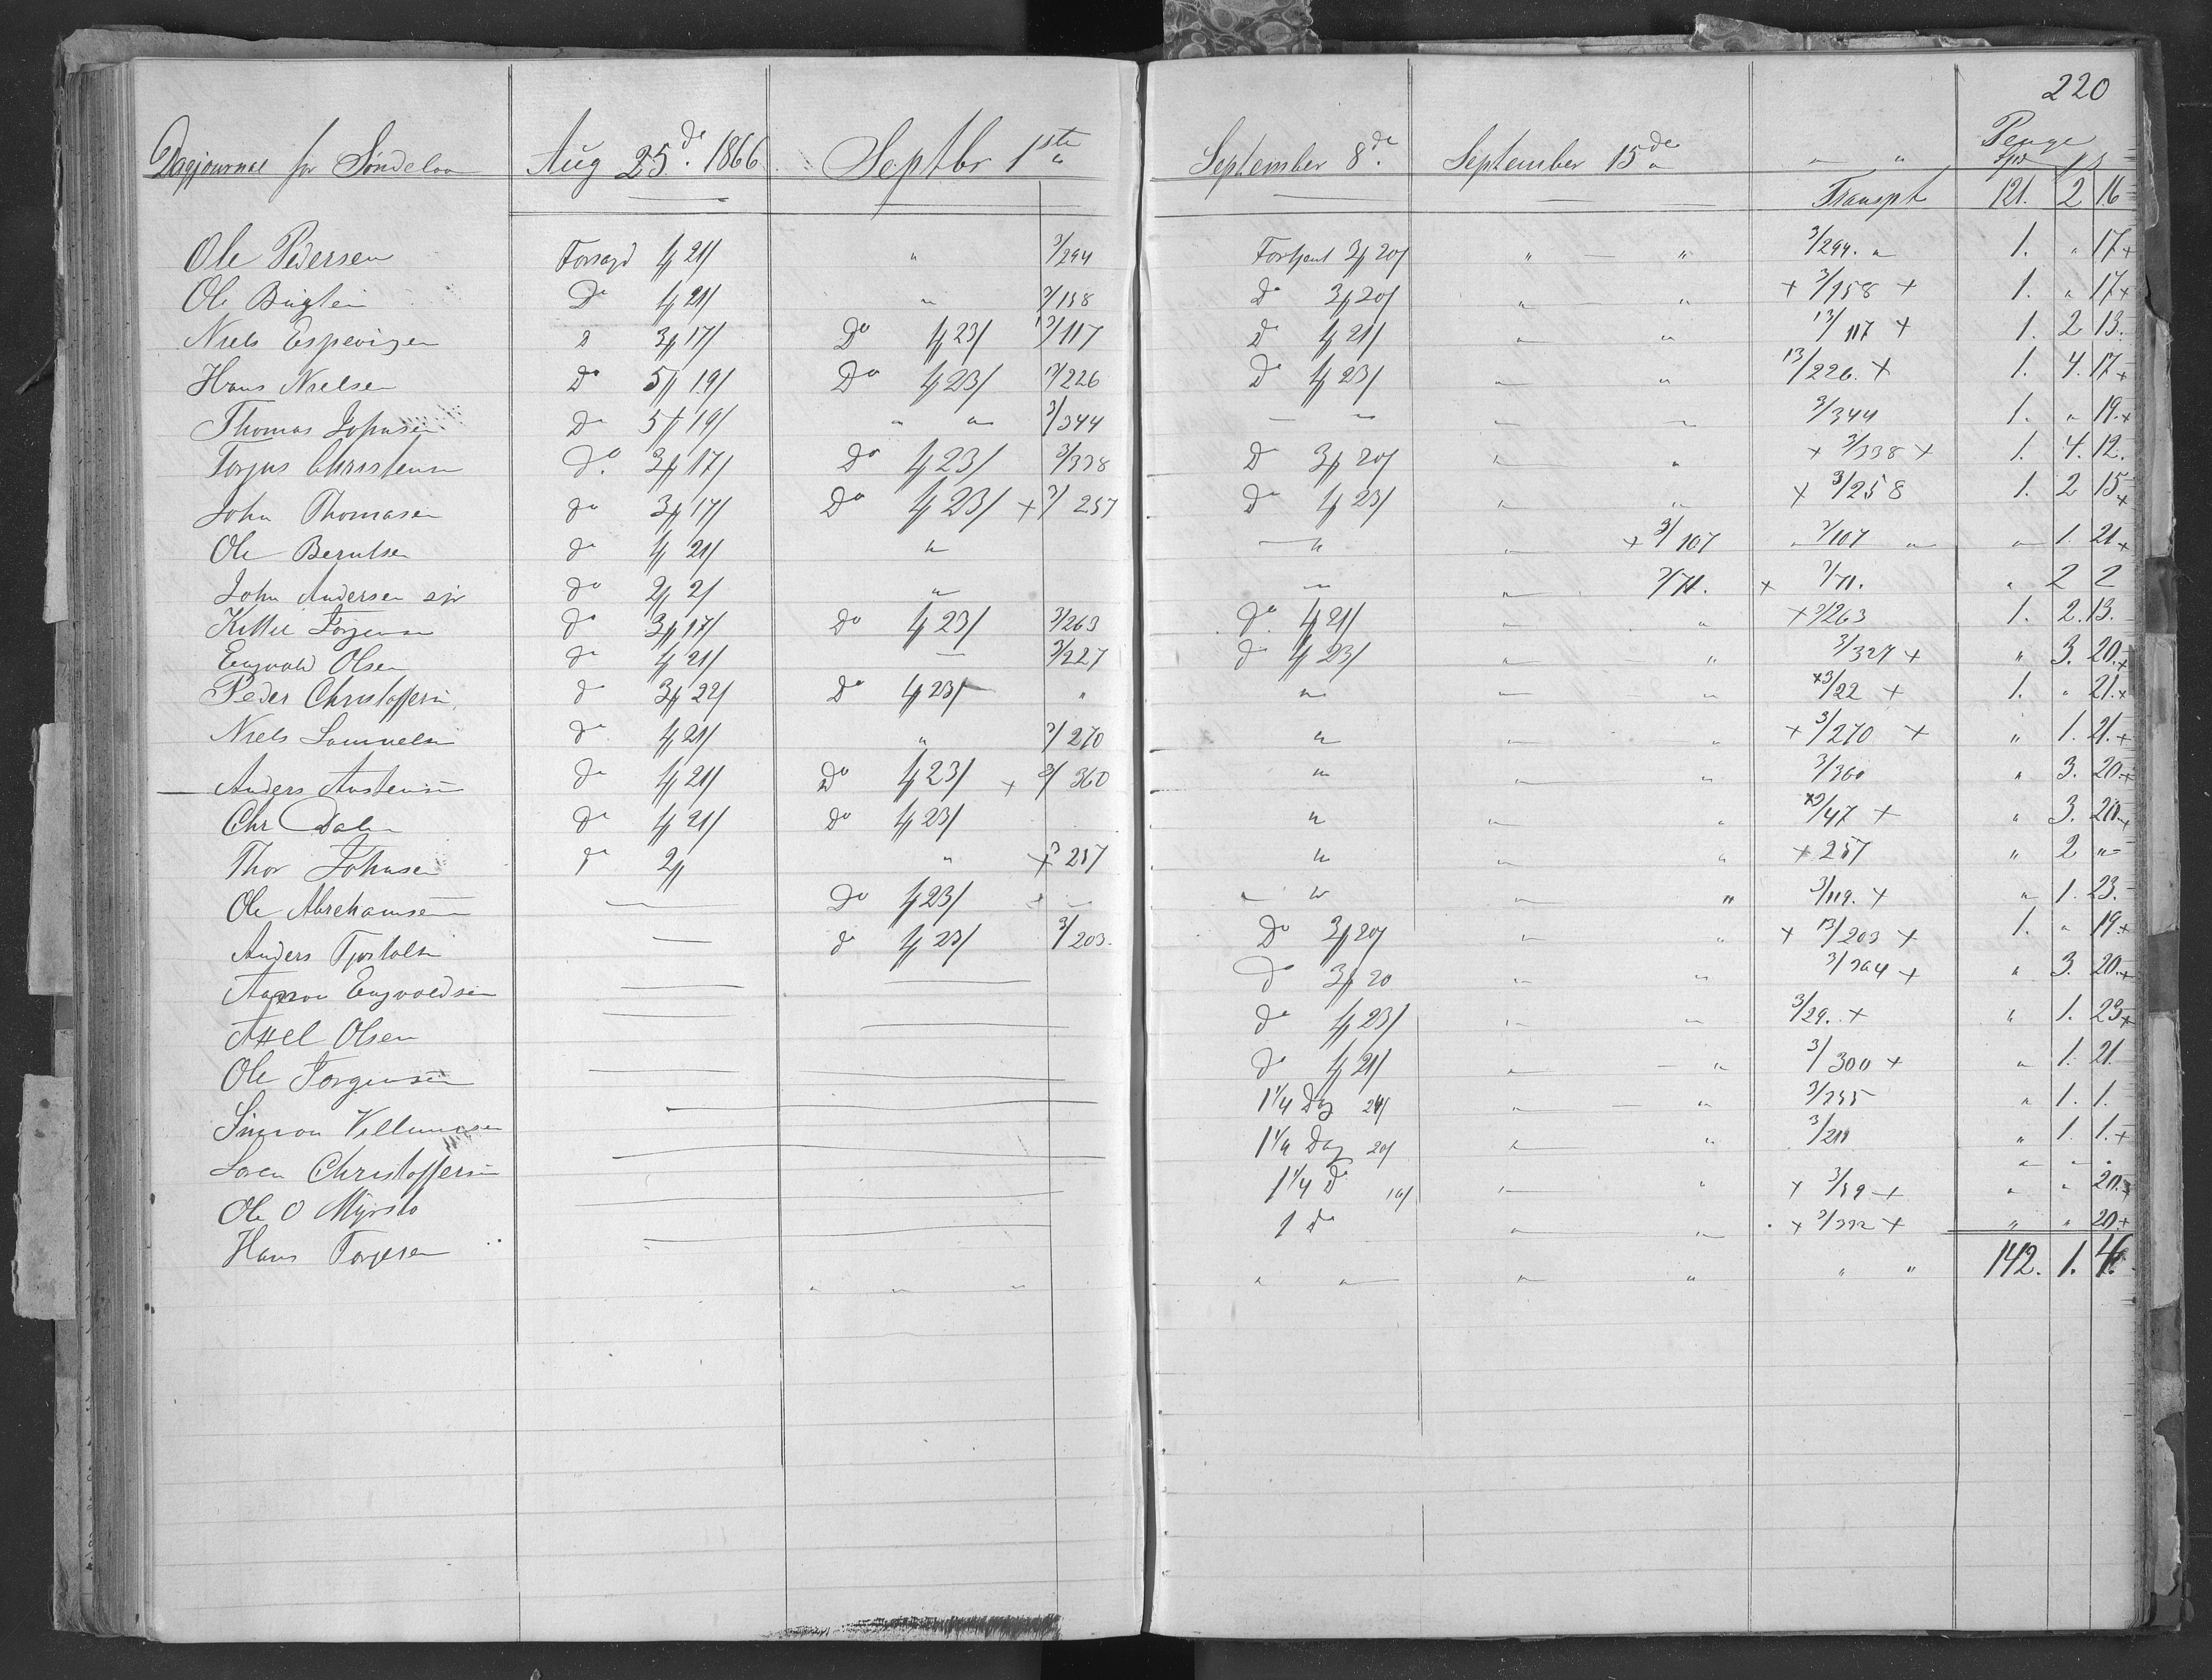 220
Dagjournal for Søndeloo Aug 25de 1866 Septbr 1ste " September 8de September 15de " " " Penge
Spd
Transpt 121. 2 16
Ole Pedersen Forsagd 1/ 21/ " 3/294 Fortjent 3/ 20/ " — " 3/294. " 1. " 17 +
Ole Do 1/ 21/ " 3/158 Do 3/ 20/ " — " + 3/158 + 1. " 17 +
Niels Espevigen D 3/ 17/ Do 1/ 23/ 13/117 Do 1/ 21/ " " 13/117 + 1. 2 13.
Hans Nielsen Do 5/ 19/ Do 1/ 23/ 3/226 Do 1/ 23/ " " 13/226. + 1. 4. 17 +
Thomas Johnsen Do 5/ 19/ " " 3/344 — " " " 3/344 1. " 19. +
Torjus Christensen Do 3/ 17/ Do 1/ 23/ 3/338 Do 3/ 20/ " " + 3/338 + 1. 4. 12.
John Thomasen do 3/ 17/ Do 1/ 23/ + 3/257 Do 1/ 23/ " " + 3/258 1. 2 15 +
Ole Berntsen do 1/ 21/ " — " " + 3/107 " 3/107 " " 1. 21 +
John Andersen do 2/ 2/ " — " 3/71. + 3/71. " 2 2
Kittel Torjensen do 3/ 17/ Do 1/ 23/ 3/263 do 1/ 21/ " " + 3/263 1. 2. 13.
Engvald Olsen do 1/ 21/ — 3/227 do 1/ 23/ " " 3/327 + " 3. 20. +
Peder Christoffersen do 3/ 22/ Do 1/ 23/ " " " " + 3/22 + 1. " 21. +
Niels Samuelsen do 1/ 21/ " 3/270 " " " + 3/270 + " 1. 21. +
Anders Austensen do 1/ 21/ Do 1/ 23/ + 3/360 " " " 3/360 " 3. 20. +
Chr Dalen do 1/ 21/ Do 1/ 23/ " " " + 3/47 + " 3. 20. +
Thor Johnsen do 2/ " + 257 " " " + 257 " 2 "
Ole Abrehamsen — Do 1/ 23/ — " " " 3/119. + " 1. 23.
Anders Tjostolsen — do 1/ 23/ 3/203. Do 3/ 20/ " " + 13/203 + 1. " 19. +
Aanon Engvoldsen — — Do 3/ 20 " " + " 3. 20. +
Axel Olsen — — do 1/ 23/ " " 3/29. + " 1. 23 +
Ole Torgensen — — do 1/ 21/ " " 3/300 + " 1. 21
Simon Villumsen — 1 1/4 Dag 24/ " — " 3/255 " 1. 1.
Soren Christoffersen — 1 1/4 Dag " " " 1. 1. +
Ole O Myrsto — 1 1/4 D " " + 3/59 + " " 20. +
Hans Torjesen — 1 do " " + 3/332 + " " 20. +
" " " " " " " " " 142. 1. 4.